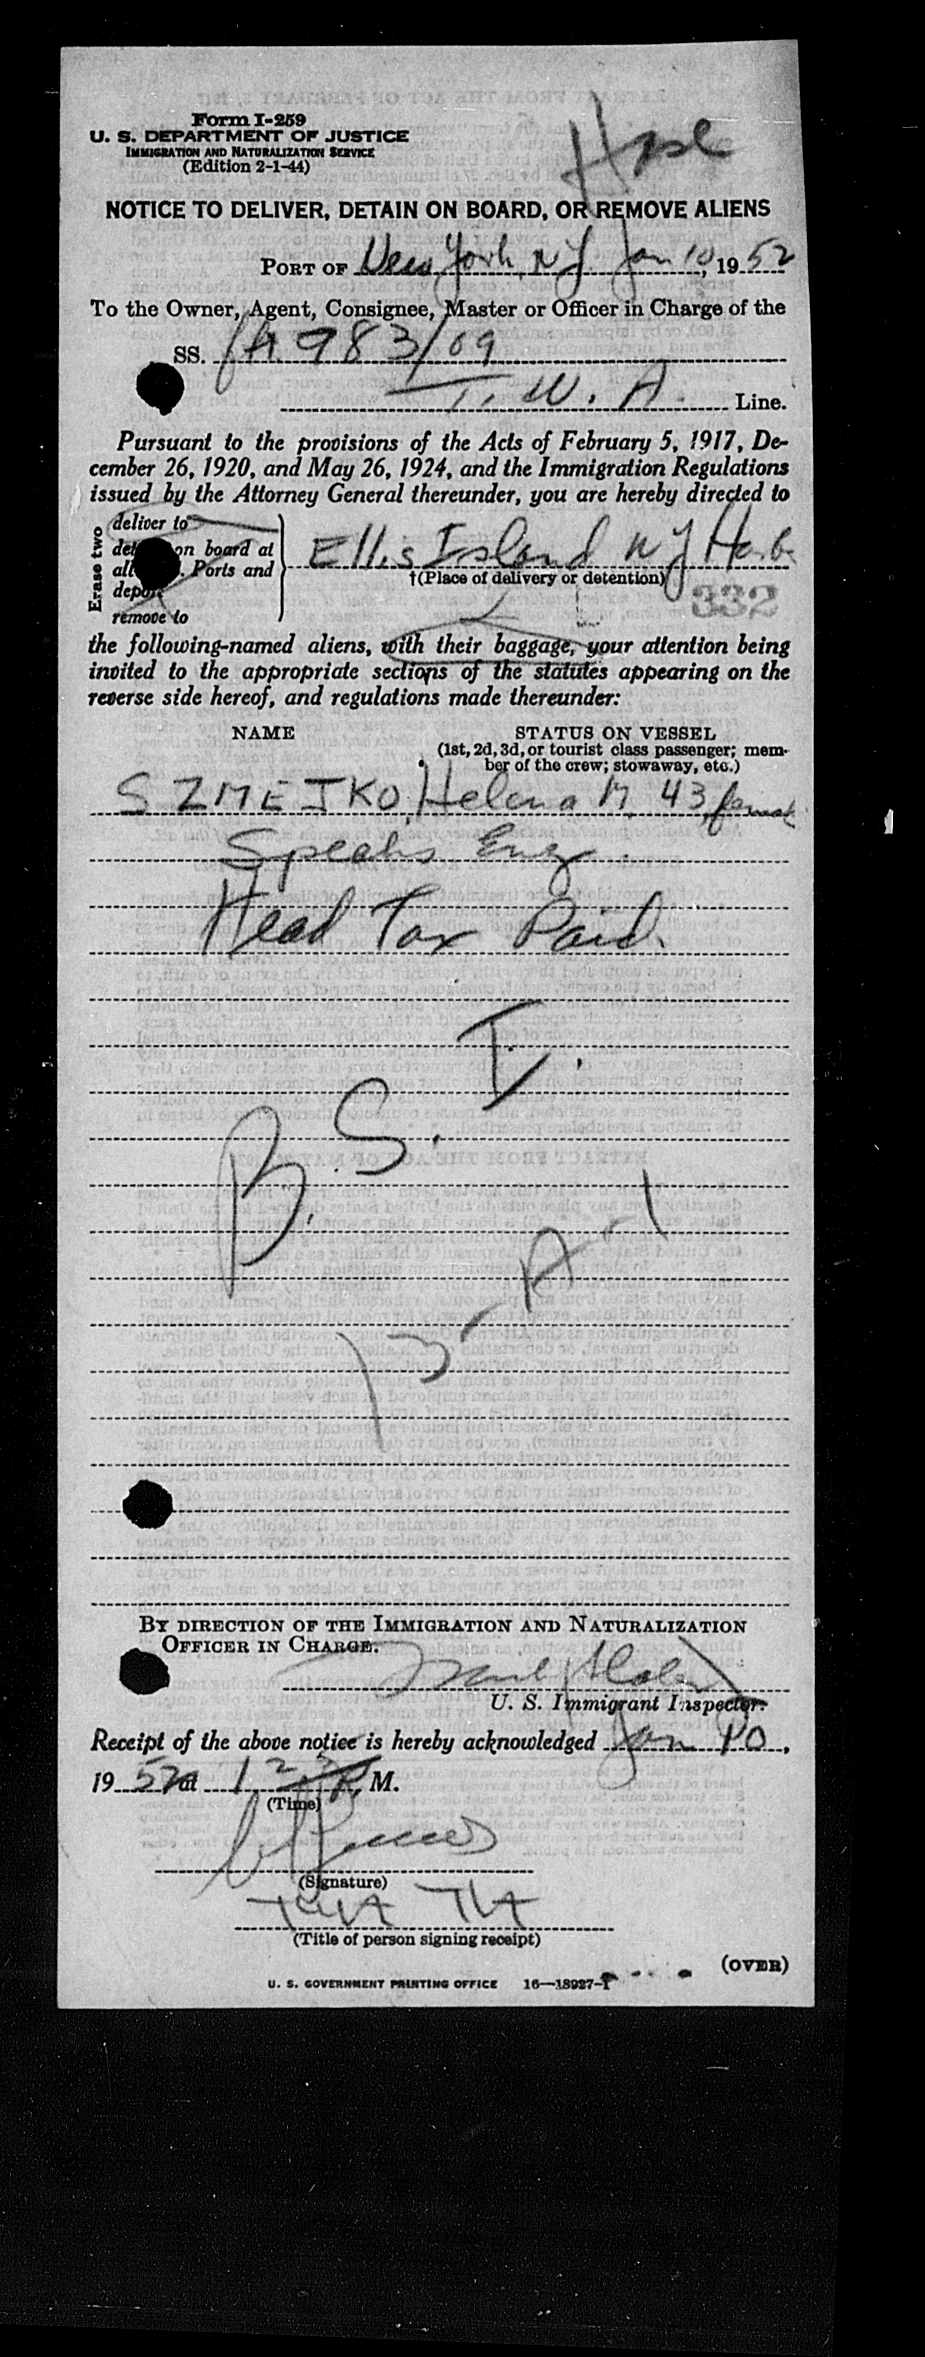 Form I-259
U. S. DEPARTMENT OF JUSTICE
IMMIGRATION AND NATURALIZATION SERVICE
(Edition 2-1-44)
NOTICE TO DELIVER, DETAIN ON BOARD, OR REMOVE ALIENS
PORT OF New York, N Y. Jan 10, 1952
To the Owner, Agent, Consignee, Master or Officer in Charge of the
SS. 983/09
T. W. A. Line.
Pursuant to the provisions of the Acts of February 5, 1917, De-
cember 26, 1920, and May 26, 1924, and the Immigration Regulations
issued by the Attorney General thereunder, you are hereby directed to
Erase two
deliver to
on board at
Ports and
remove to
Ellis Island N Y Harb.
†(Place of delivery or detention)
332
the following-named aliens, with their baggage, your attention being
invited to the appropriate sections of the statutes appearing on the
reverse side hereof, and regulations made thereunder:
NAME STATUS ON VESSEL
(1st, 2d, 3d, or tourist class passenger; mem-
ber of the crew; stowaway, etc.)
SZMEJKO, Helena M. 43, female
Speaks Eng.
Head Tax Paid.
B. S. I.
BY DIRECTION OF THE IMMIGRATION AND NATURALIZATION
OFFICER IN CHARGE.
U. S. Immigrant Inspector.
Receipt of the above notice is hereby acknowledged Jan 10,
1952 at M.
(Time)
(Signature)
(Title of person signing receipt)
(OVER)
U. S. GOVERNMENT PRINTING OFFICE 16—18927-1